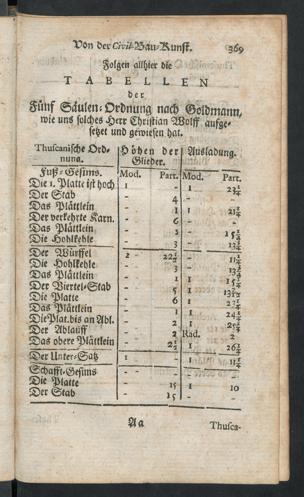 Von der Civil-Bau-Kunst. 369
Folgen allhier die
TABELLEN
der
Fünf Säulen-Ordnung nach Goldmann,
wie uns solches Herr Christian Wolff aufge-
setzet und gewiesen hat.
Thuscanische Ord- Höhen der Ausladung.
nuna. Glieder.
Fuß-Gesims. Mod. Part. Mod. Part.
Die 1. Platte ist hoch 1 - 1
Der Stab - 4 -
Das Plättlein - 1 1
Der verkehrte Karn. - 6 -
Das Plättlein
Die Hohlkehle - 3
Der Würffel
Die Hohlkehle - 3
Das Plättlein - 1 1
Der Viertel-Stab - 5 1
Die Platte - 6 1
Das Plättlein - 1 1
Die Plat. bis an Abl. - 2 1
Der Ablauff - 2 Rad. 2
Das obere Plättlein - 1
Der Unter-Satz 1 - 1
Schafft-Gesims
Die Platte - 15 1 10
Der Stab - 15 -
Aa Thusca-